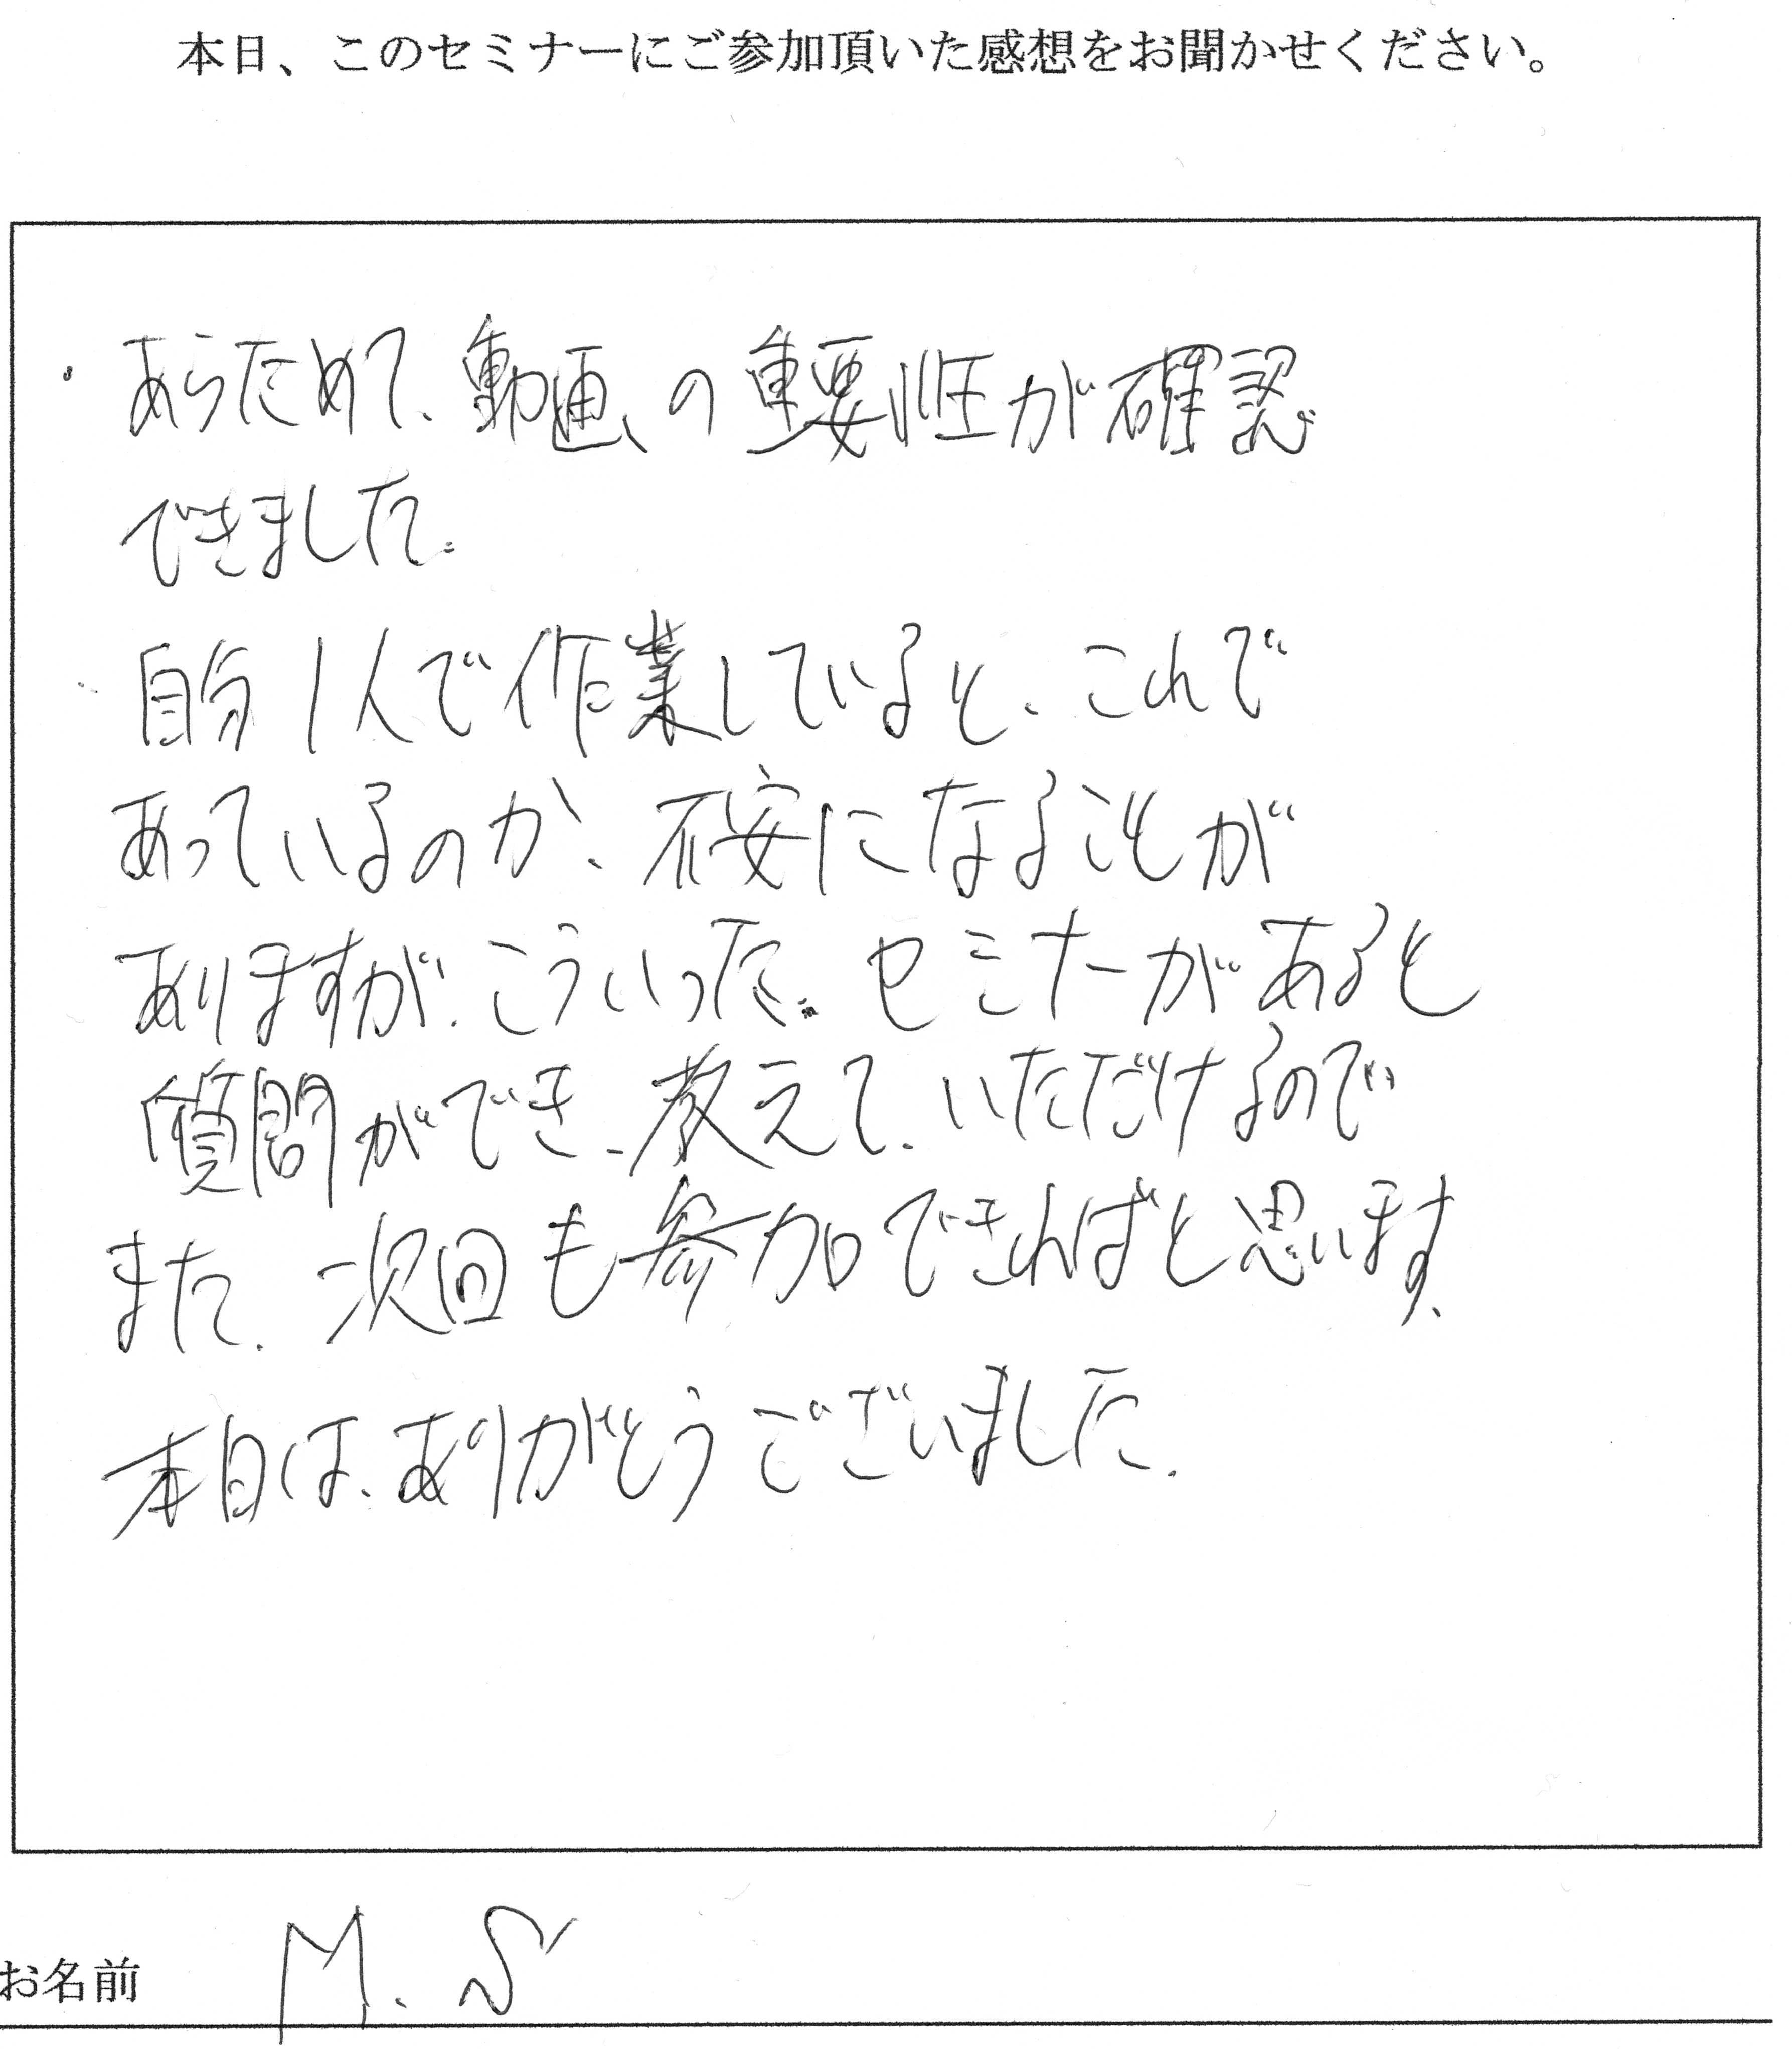 本日、このセミナーにご参加頂いた感想をお聞かせください。
・あらためて、動画、の重要性が確認
できました。
自分1人で作業していると、これで
あっているのか、不安になることが
ありますが、こういった、セミナーがあると
質問ができ、教えて、いただけるので
また、次回も参加できればと思います、
本日は、ありがとうございました。
お名前 M.S